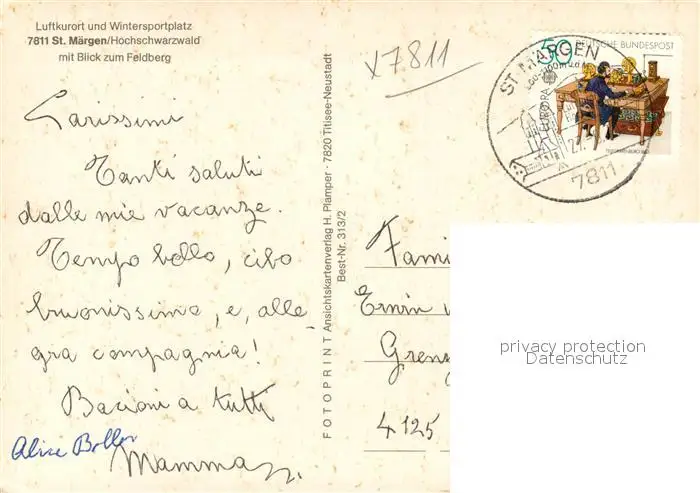 Luftkurort und Wintersportplatz
7811 St. Märgen/Hochschwarzwald
mit Blick zum Feldberg
x7811
50 DEUTSCHE BUNDESPOST
EUROPA
ST. MÄRGEN
7811
Carissimi
Tanti saluti
dalle mie vacanze.
Tempo bello, cibo
buonissimo, e, alle-
gra compagnia!
Bacioni a tutti
Mamma
FOTOPRINT Ansichtskartenverlag H. Plamper · 7820 Titisee-Neustadt
Best-Nr. 313/2
Fami
Erwin
Grenz
4125
privacy protection
Datenschutz